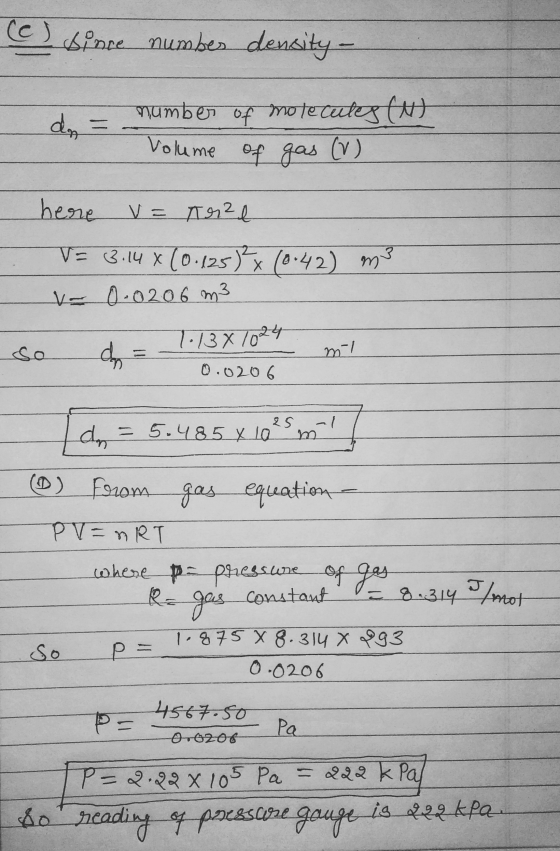 (C) Since number density -
dₙ = number of molecules (N) / Volume of gas (V)
here V = πr²l
V = 3.14 × (0.125)² × (0.42) m³
V = 0.0206 m³
So dₙ = 1.13 × 10²⁴ / 0.0206 m⁻¹
dₙ = 5.485 × 10²⁵ m⁻¹
(D) From gas equation -
PV = nRT
where P = pressure of gas
R = gas constant = 8.314 J/mol
So P = 1.875 × 8.314 × 293 / 0.0206
P = 4567.50 / 0.0206 Pa
P = 2.22 × 10⁵ Pa = 222 kPa
So reading of pressure gauge is 222 kPa.